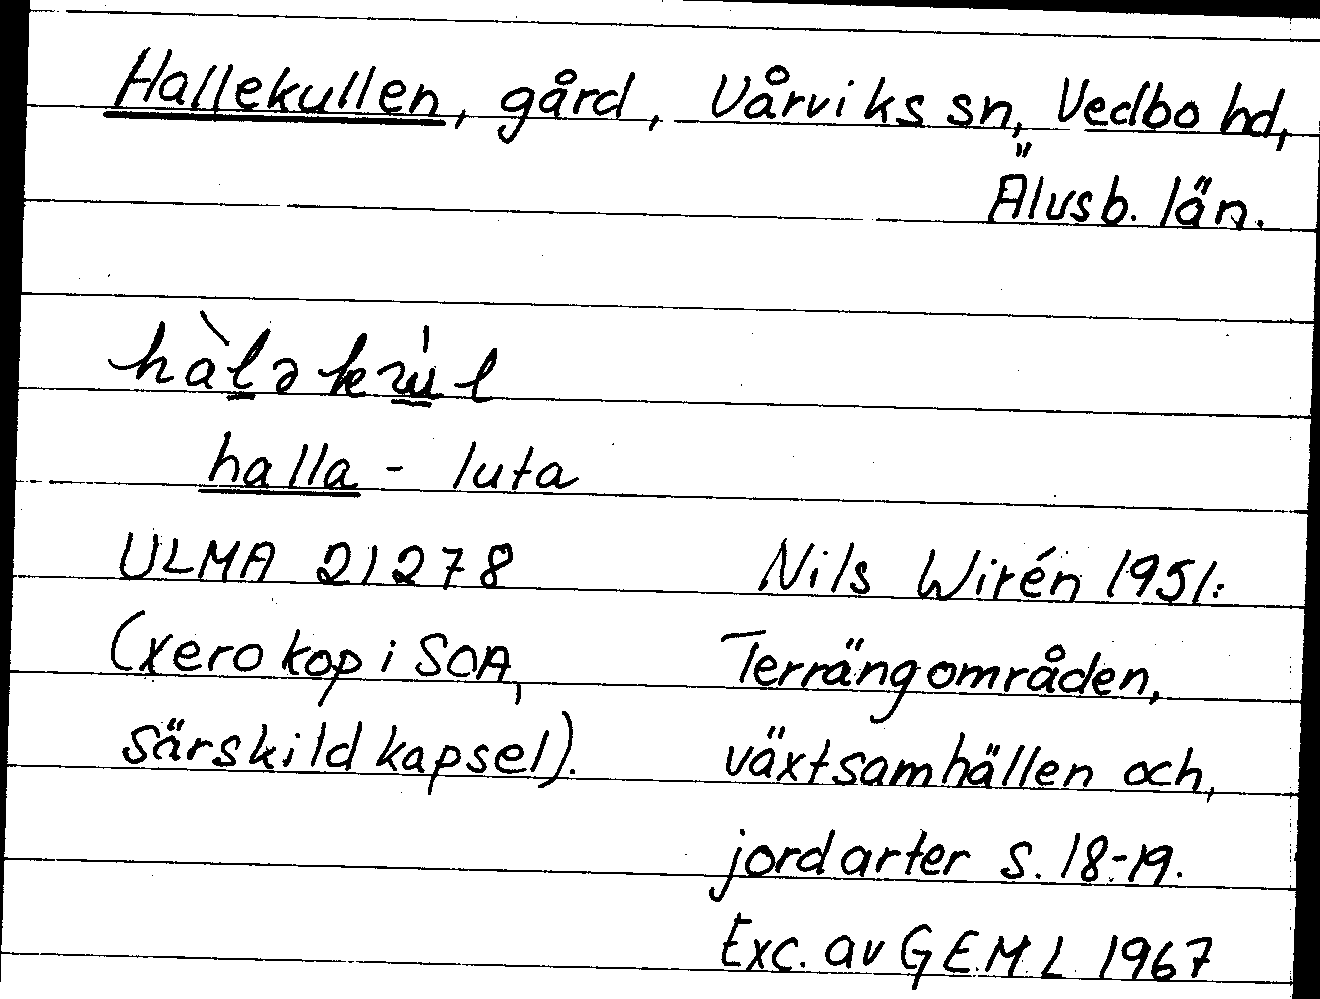 Hallekullen, gård, Vårviks sn, Vedbo hd,
Älvsb. län.
hàləkul
halla - luta
ULMA 21278
(xerokop i SOA,
särskild kapsel).
Nils Wirén 1951:
Terrängområden,
växtsamhällen och,
jordarter s. 18-19.
Exc. av G E.M. L 1967